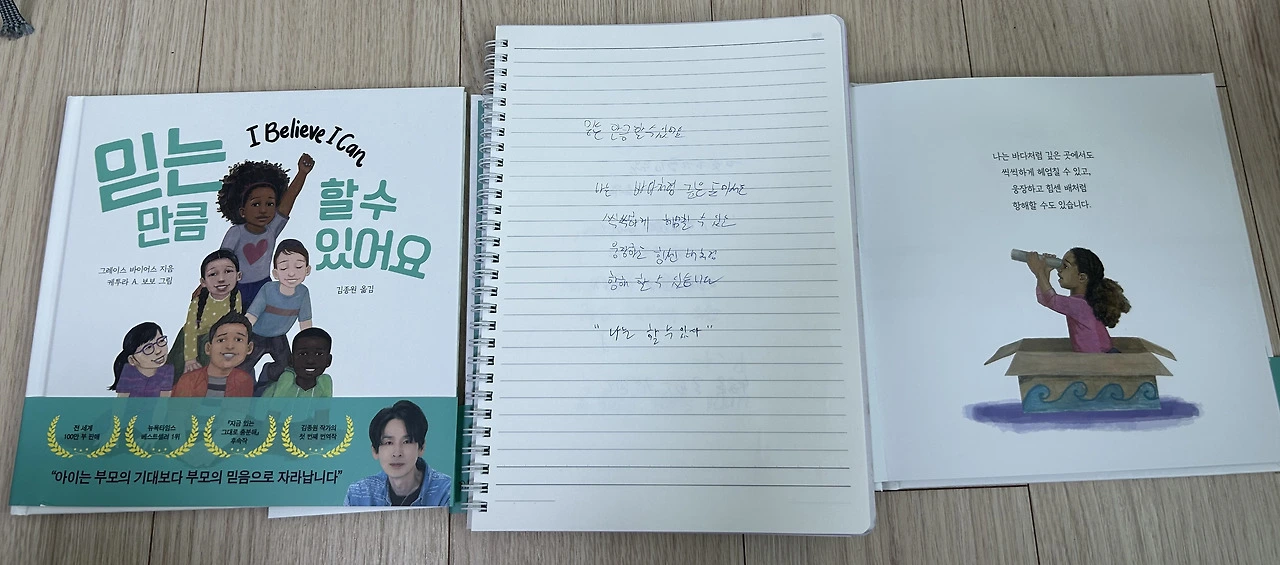 I Believe I Can
믿는
만큼
할 수
있어요
그레이스 바이어스 지음
케투라 A. 보보 그림
김종원 옮김
전 세계
100만 부 판매
뉴욕타임스
베스트셀러 1위
『지금 있는
그대로 충분해』
후속작
김종원 작가의
첫 번째 번역작
“아이는 부모의 기대보다 부모의 믿음으로 자라납니다”
믿는 만큼 할 수 있어요
나는 바다처럼 깊은 곳에서도
씩씩하게 헤엄칠 수 있고
웅장하고 힘센 배처럼
항해 할 수 있습니다
"나는 할 수 있다"
나는 바다처럼 깊은 곳에서도
씩씩하게 헤엄칠 수 있고,
웅장하고 힘센 배처럼
항해할 수도 있습니다.